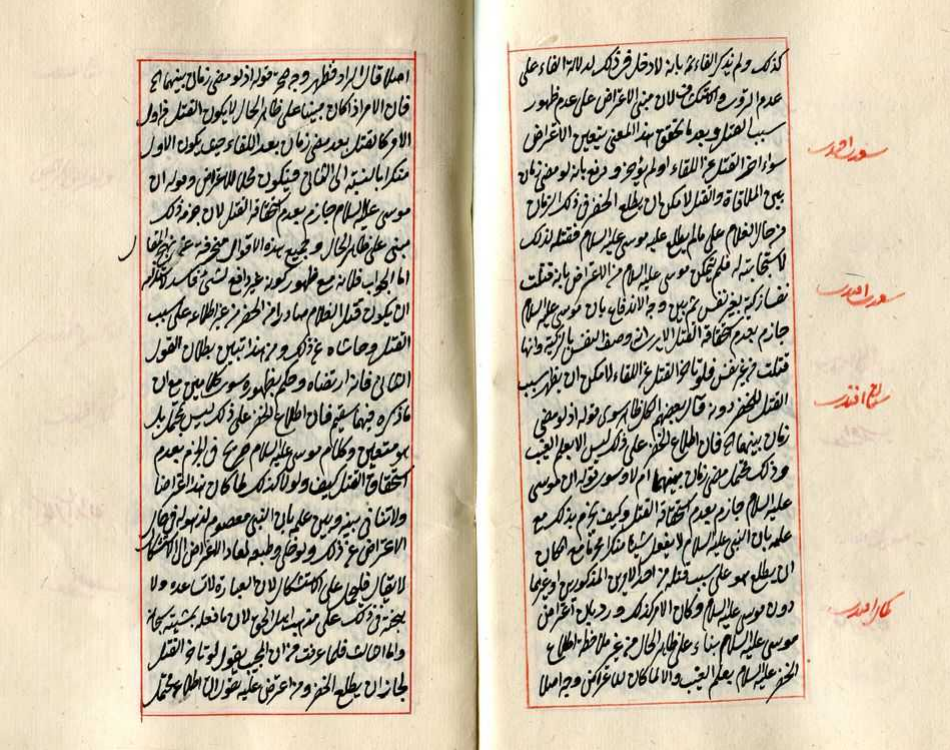 كذلك ولم يذكر الفاء بانه لا دخل في ذلك لدلالة الفاء على
عدم لان مبنى الاعتراض على عدم ظهور
سبب القتل وبعد ما تحقق هذا المعنى يتعين الاعتراض
سواء اخر القتل عن اللقاء او لم يؤخر ودفع بانه لو مضى زمان
بين الملاقاة والقتل لامكن ان يطلع الخضر في ذلك الزمان
من حال الغلام على ما لم يطلع عليه موسى عليه السلام فقتله لذلك
له فلم يتمكن موسى عليه السلام من الاعتراض بانه قتلت
نفسا زكية بغير نفس ثم بين وجه الاندفاع بان موسى عليه السلام
جازم بعدم استحقاقه القتل الا يرى انه وصف النفس بالزكية وانها
قتلت من غير نفس فلو تاخر القتل عن اللقاء لامكن ان يظهر سبب
القتل للخضر دونه قال بعضهم الكل ظاهر سوى قوله اذ لو مضى
زمان بينهما الخ فان اطلاع الخضر على ذلك ليس الا بعلم الغيب
وذلك محتمل مضى زمان بينهما ام لا وسوى قوله ان موسى
عليه السلام جازم بعدم استحقاقه القتل وكيف يجزم بذلك مع
علمه بان النبي عليه السلام لا يفعل شيئا منكرا محرما مع امكان
ان يطلع هو على سبب قتله من احد الامرين المذكورين او غيرهما
دون موسى عليه السلام وكان الامر كذلك ورد بان اعتراض
موسى عليه السلام بناء على ظاهر الحال من غير ملاحظة اطلاع
الخضر عليه السلام بعلم الغيب والا لما كان للاعتراض وجه اصلا
سعدى افندى
سعدى افندى
صالح افندى
اصلا قال الراد فظهر وجه صحة قوله اذ لو مضى زمان بينهما الخ
فان الامر اذا كان مبنيا على ظاهر الحال لا يكون القتل في اول
الامر كالقتل بعد مضى زمان بعد اللقاء حتى يكون الاول
منكرا بالنسبة الى الثانى فيكون محلا للاعتراض وقوله ان
موسى عليه السلام جازم بعدم استحقاقه القتل لان جزمه ذلك
مبنى على ظاهر الحال وجميع هذه الاقوال منحرفة عن نهج
اما الجواب فلانه مع ظهور كونه غير دافع لشئ فاسد لاستلزامه
ان يكون قتل الغلام صادرا من الخضر من غير اطلاعه على سبب
القتل وحاشاه عن ذلك ومن هذا تبين بطلان القول
الثانى فانه ارتضاه وحكم بظهوره سوى كلامين مع ان
ما ذكره فيهما سقيم فان اطلاع الخضر على ذلك ليس بمحتمل بل
هو متعين وكلام موسى عليه السلام صريح فى الجزم بعدم
استحقاق القتل كيف ولو لا كذلك لما كان هذا اعتراضا
ولا تنافى بينه وبين علمه بان النبى معصوم لذهوله فى حال
الاعتراض عن ذلك ولو خلى وطبعه لعاد الاعتراض الى الاستشكال
لا يقال فليحمل على الاستشكال لان العبارة لا تساعده ولا
على مذهب اهل الحق لان ما فعله بمشيته
واما فلما عرفت من ان المجيب يقول لو تاخر القتل
لجاز ان يطلع الخضر ومن اعترض عليه يقول ان اطلاعه محتمل